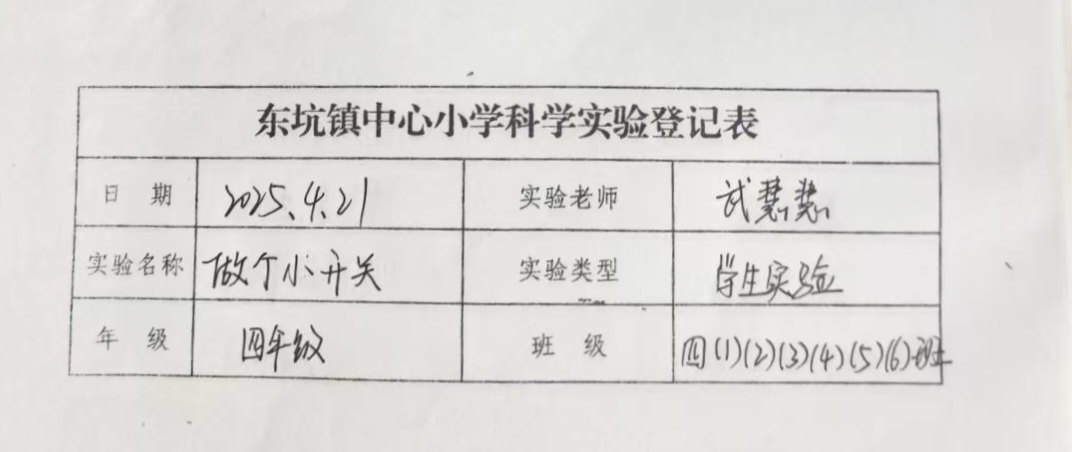 东坑镇中心小学科学实验登记表
日 期 2025.4.21 实验老师 武慧慧
实验名称 做个小开关 实验类型 学生实验
年 级 四年级 班 级 四(1)(2)(3)(4)(5)(6)班